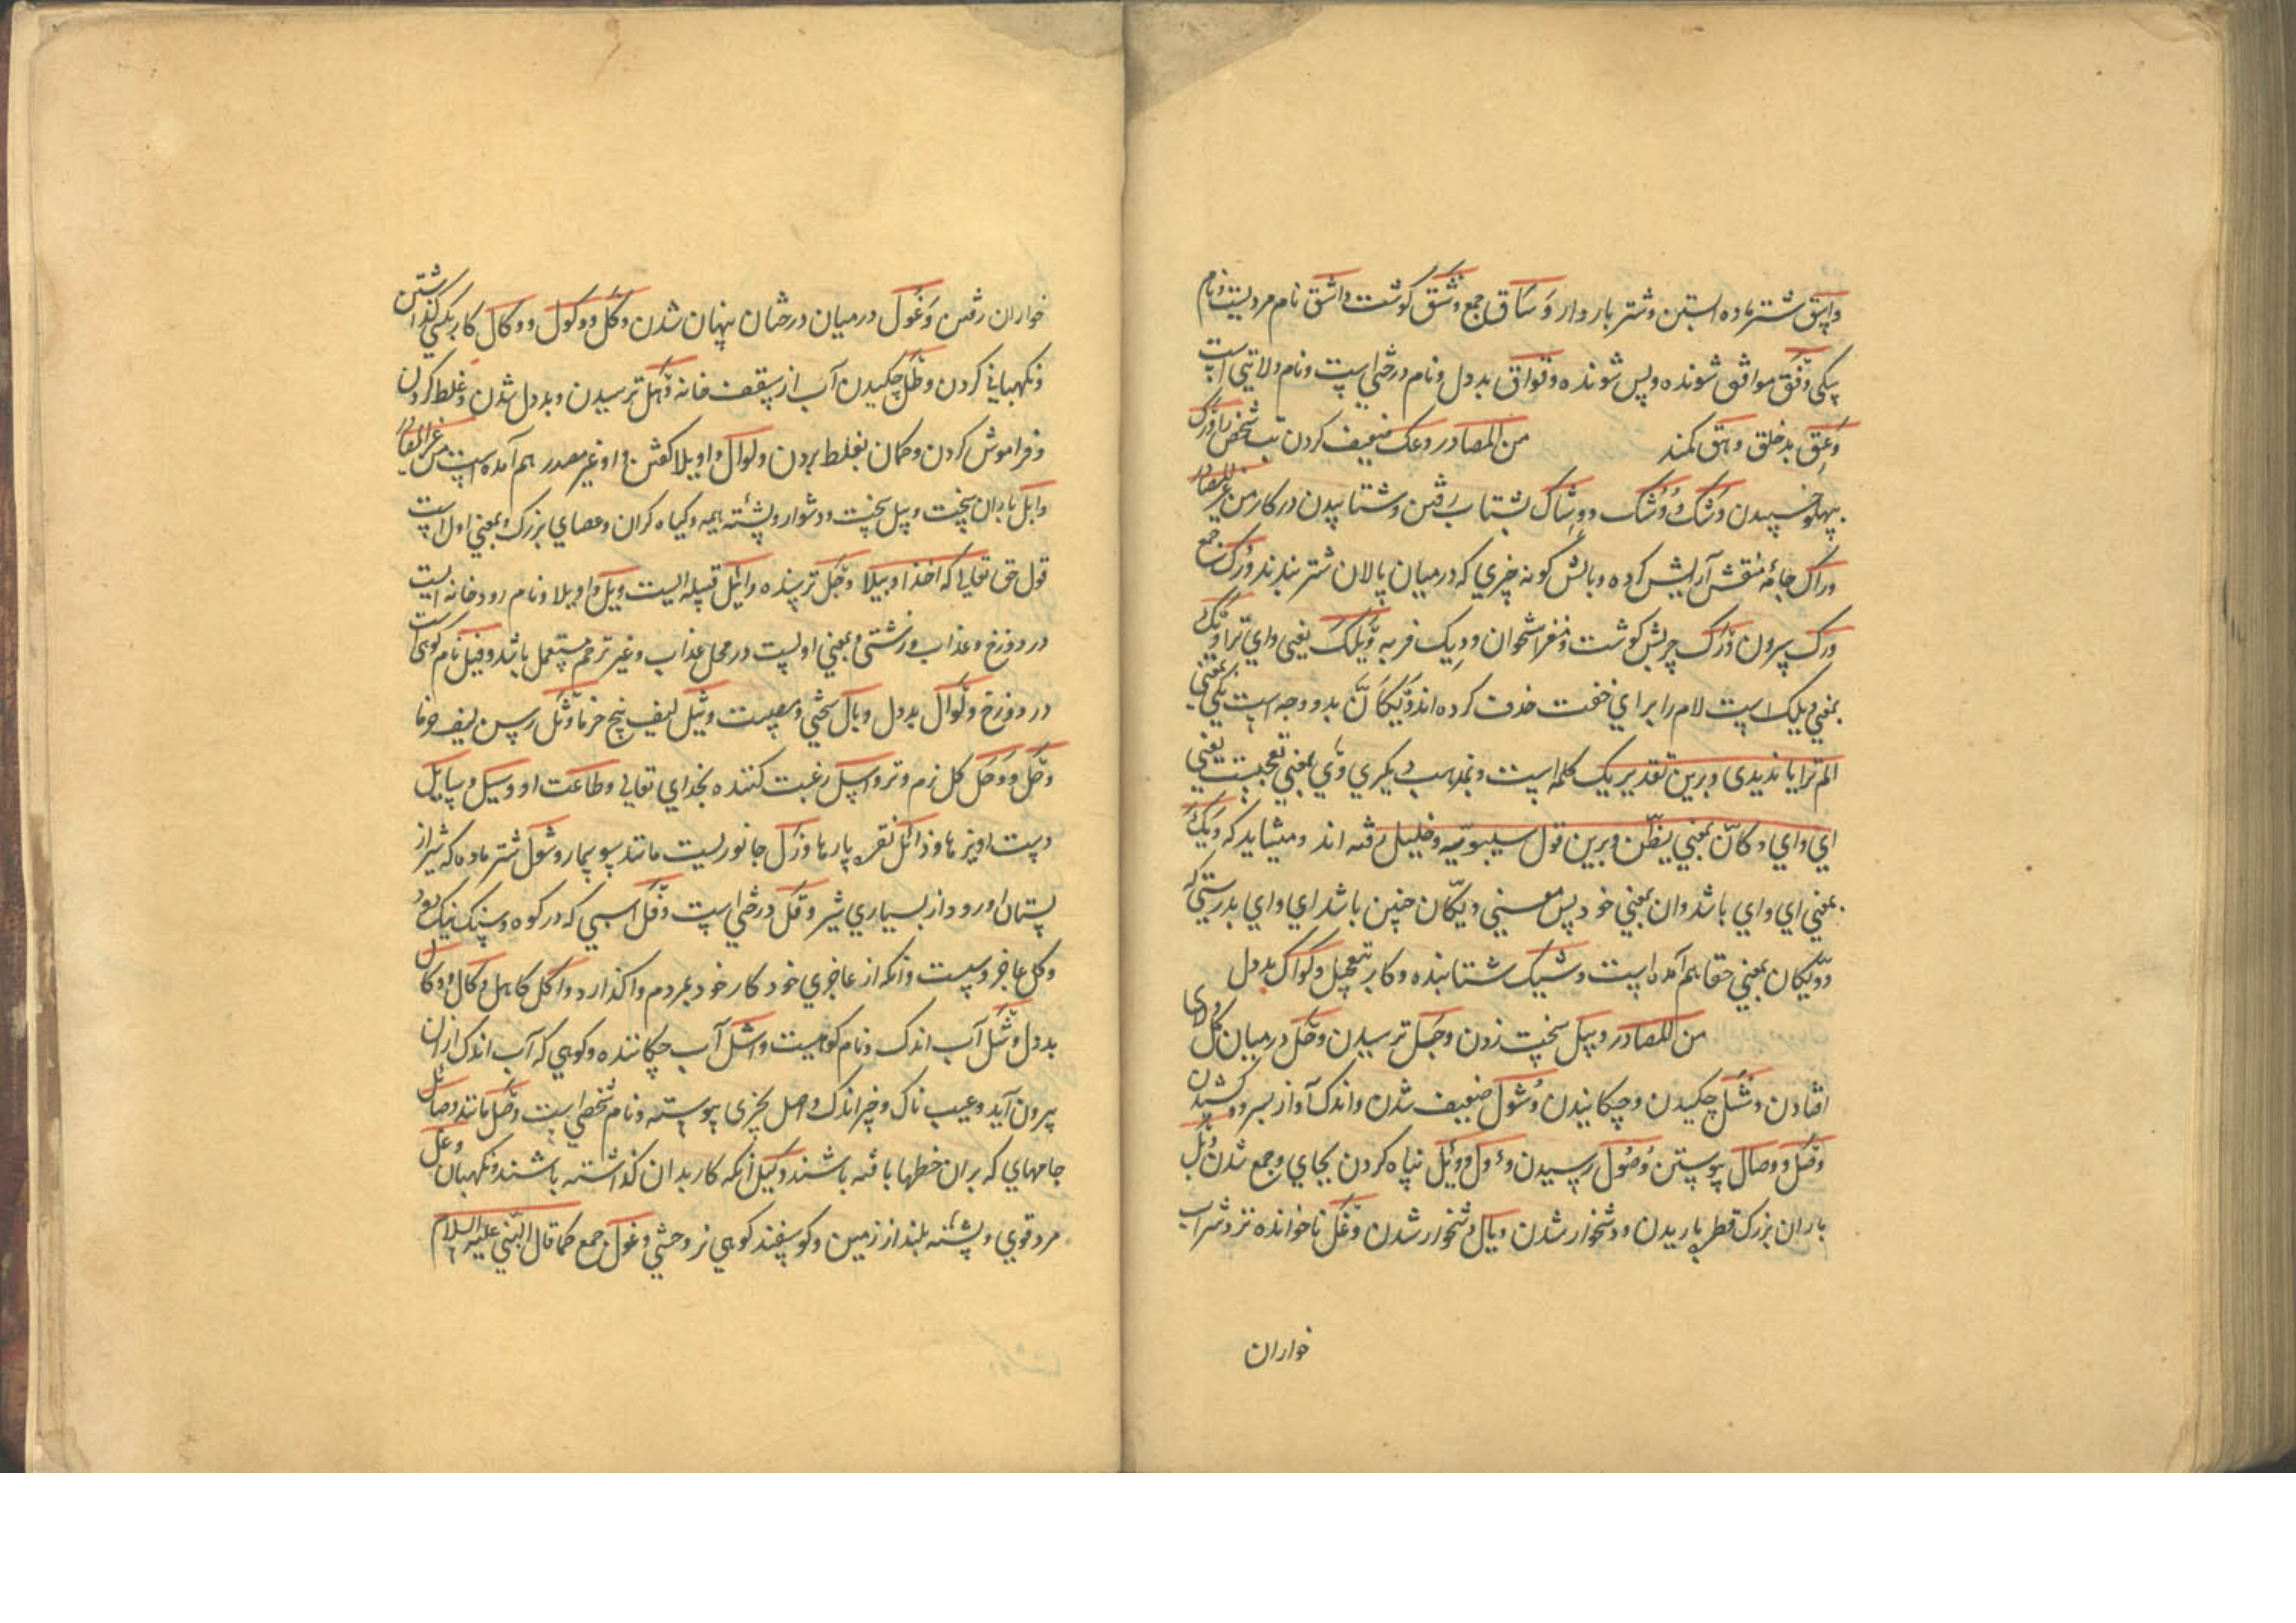 واسق شتر ماده ابستن و شتر باردار وَسَاق جمع وشق کوشت واشق نام مردیست و نام
سکی وَفق موافق شونده و پس شونده وقواق بددل و نام درختی است و نام ولایتی است
وَعِق بدخلق وهق کمند من المصادر وعک ضعیف کردن تب شخص را ورک
بپهلو خسپیدن وشک وُشک ووِشاک بشتاب رفتن و شتابیدن در کار من غیر المصادر
وراک جامهٔ منقش آرایش کرده و بالش کونه چیزی که در میان پالان شتر بندند ورک جمع
ورک سرون وَرَک چربش کوشت و مغز استخوان ودیک فربه ویلک یعنی وای ترا ویک
بمعنی ویلک است لام را برای خفت حذف کرده اند ویکأنّ بدو وجه است یکی بمعنی
الم تر ایا ندیدی و برین تقدیر یک کلمه است و بمذهب دیکری وَی بمعنی تعجبست یعنی
ای وای و کانّ بمعنی یظنّ و برین قول سیبویه و خلیل رفته اند و میشاید که ویک
بمعنی ای وای باشد و ان بمعنی خود پس معنی ویکانّ چنین باشد ای وای بدرستی که
وویکان بمعنی حقا هم آمده است وشیک شتابنده و کار بتعجیل وکواک بددل
من المصادر وبیل سخت زدن وجل ترسیدن وحل در میان کل و لای
افتادن وشل چکیدن و چکانیدن وُشول ضعیف شدن و اندک آواز بسرود کشیدن
وصل ووصال پیوستن وُصول رسیدن وءول ووئل پناه کردن بجای و جمع شدن وبل
باران بزرک قطره باریدن و دشخوار شدن وبال دشخوار شدن وغل ناخوانده نزد شراب
خواران
خواران رفتن وَغُول در میان درختان پنهان شدن وکل ووکول ووکال کار بکسی کذاشتن
و نکهبانی کردن وطل چکیدن آب از سقف خانه وَهل ترسیدن و بددل شدن و غلط کردن
و فراموش کردن و کمان بغلط بردن ولوال واویلا کفتن و او غیر مصدر هم آمده است من غیر المصادر
وابل باران سخت وبیل سخت و دشوار و پشته هیمه و کیاه کران و عصای بزرک و بمعنی اول است
قول حق تعالی که اخذا وبیلا وجل ترسنده وائل قبیله ایست ویل واویلا و نام رودخانه ایست
در دوزخ و عذاب و زشتی و بمعنی اولیست در محل عذاب و غیر ترحم مستعمل باشد ونیل نام کوهی است
در دوزخ ولوال بددل وبال سختی و معصیت وثیل لیف بیخ خرما وثل رسن لیف خرما
وحَل ووحَل کل نرم و تر واسل رغبت کننده بخدای تعالی و طاعت او وسیل وسایل
دست اویزها وذائل نقره پارها ورل جانوریست مانند سوسمار وشول شتر ماده که شیر از
پستان او رود از بسیاری شیر وقل درختی است وقل اسبی که در کوه و سنک نیک رود
وکل عاجز و سست و انکه از عاجزی خود کار خود بمردم واکذارد واکل کاهل وکال ووکال
بددل وشل آب اندک و نام کوهیست واشل آب چکاننده و کوهی که آب اندک از ان
بیرون آید و عیب ناک و خیر اندک واصل بچیزی پیوسته و نام شخصی است وصل مانند وصائل
جامهای که بر ان خطها بافته باشند وکیل آنکه کار بدان کذاشته باشند و نکهبان وعل
مرد قوی و پشته بلند از زمین و کوسفند کوهی نر وحشی وعول جمع کما قال النبی علیه السلام